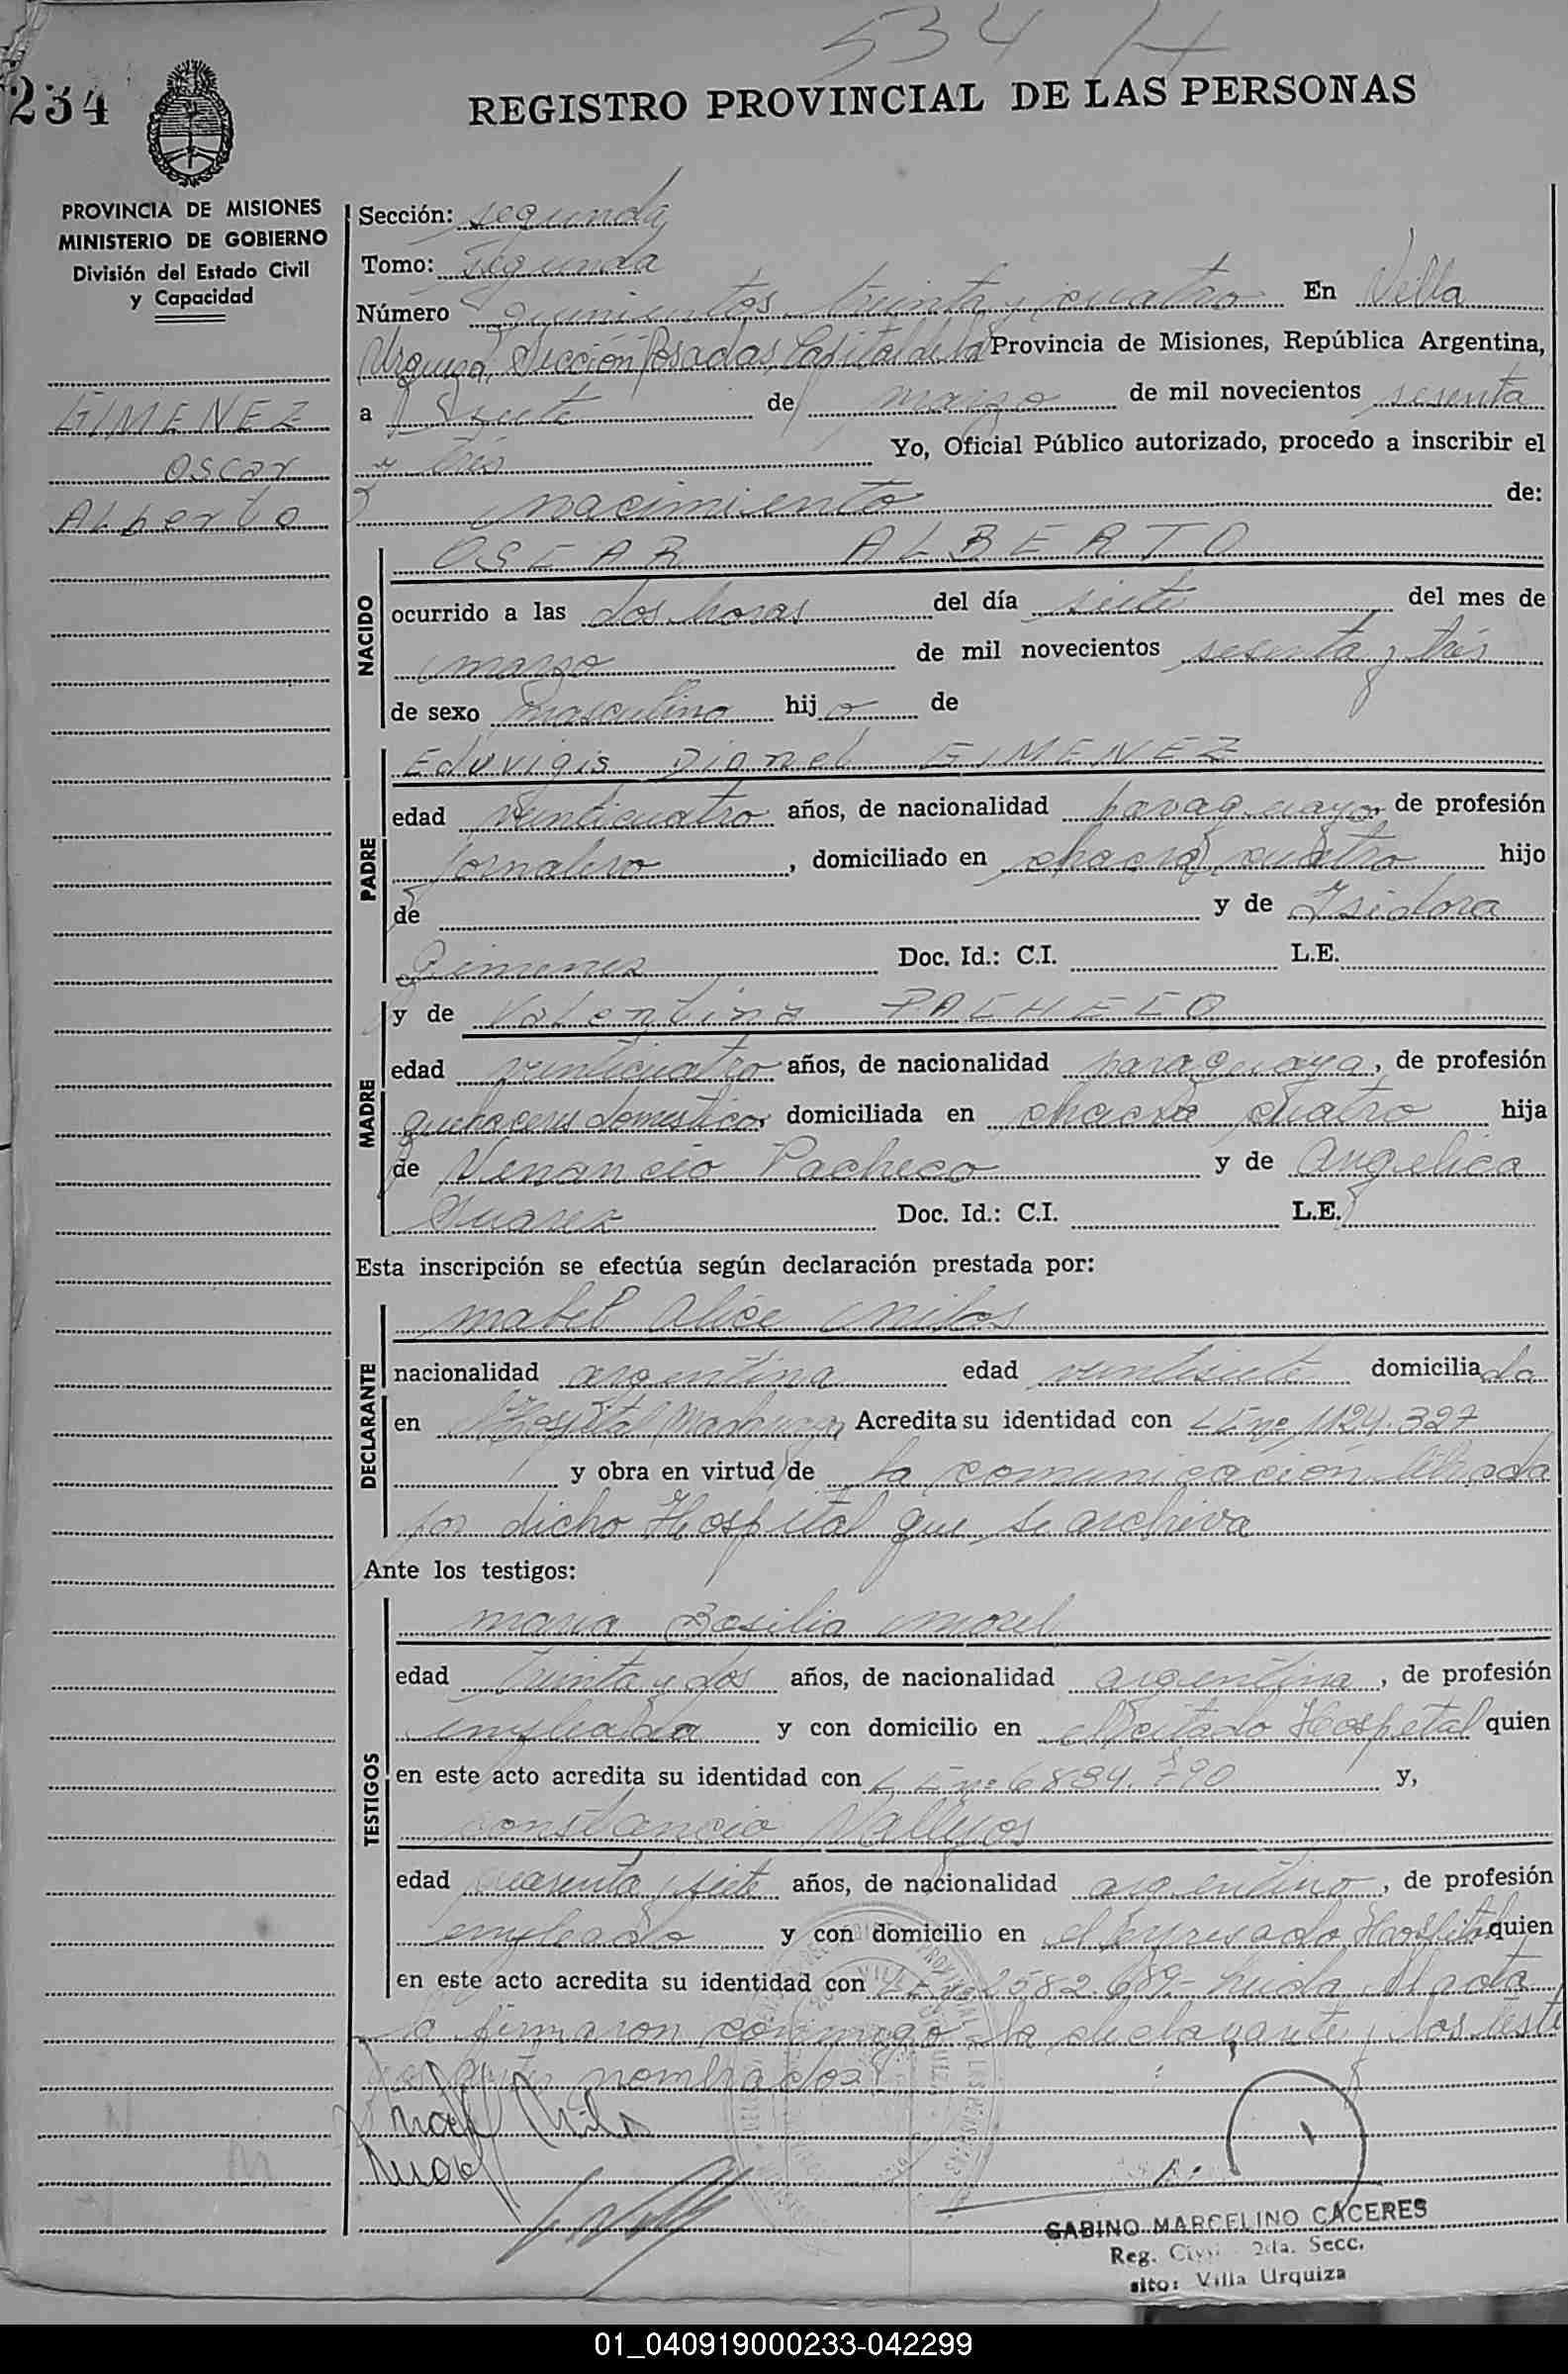 534 H
234
REGISTRO PROVINCIAL DE LAS PERSONAS
PROVINCIA DE MISIONES
MINISTERIO DE GOBIERNO
División del Estado Civil
y Capacidad
GIMENEZ
Oscar
Alberto
Sección: segunda
Tomo: segunda
Número quinientos treinta y cuatro En Villa
Urquiza, Sección Posadas, Capital de la Provincia de Misiones, República Argentina,
a siete de marzo de mil novecientos sesenta
y tres Yo, Oficial Público autorizado, procedo a inscribir el
nacimiento de:
NACIDO
OSCAR ALBERTO
ocurrido a las dos horas del día siete del mes de
marzo de mil novecientos sesenta y tres
de sexo masculino hijo de
PADRE
Eduvigis Dionel GIMENEZ
edad veinticuatro años, de nacionalidad paraguayo, de profesión
jornalero, domiciliado en chacra cuatro hijo
de y de Isidora
Gimenez Doc. Id.: C.I. L.E.
MADRE
y de Valentina PACHECO
edad veinticuatro años, de nacionalidad paraguaya, de profesión
quehaceres domesticos domiciliada en chacra cuatro hija
de Venancio Pacheco y de Angelica
Suarez Doc. Id.: C.I. L.E.
Esta inscripción se efectúa según declaración prestada por:
DECLARANTE
Mabel Alice Milos
nacionalidad argentina edad veintisiete domiciliada
en Hospital Madariaga Acredita su identidad con L E nº 1124.327
y obra en virtud de la comunicación librada
por dicho Hospital que se archiva
Ante los testigos:
TESTIGOS
Maria Basilia Morel
edad treinta y dos años, de nacionalidad argentina, de profesión
empleada y con domicilio en el citado Hospital quien
en este acto acredita su identidad con L E nº 6834.790 y,
Constancio Vallejos
edad cuarenta y siete años, de nacionalidad argentino, de profesión
empleado y con domicilio en el expresado Hospital quien
en este acto acredita su identidad con L E nº 2582.689- leida el acta
la firmaron conmigo la declarante y los testi
gos nombrados
SABINO MARCELINO CACERES
Reg. Civil 2da. Secc.
sito: Villa Urquiza
01_040919000233-042299